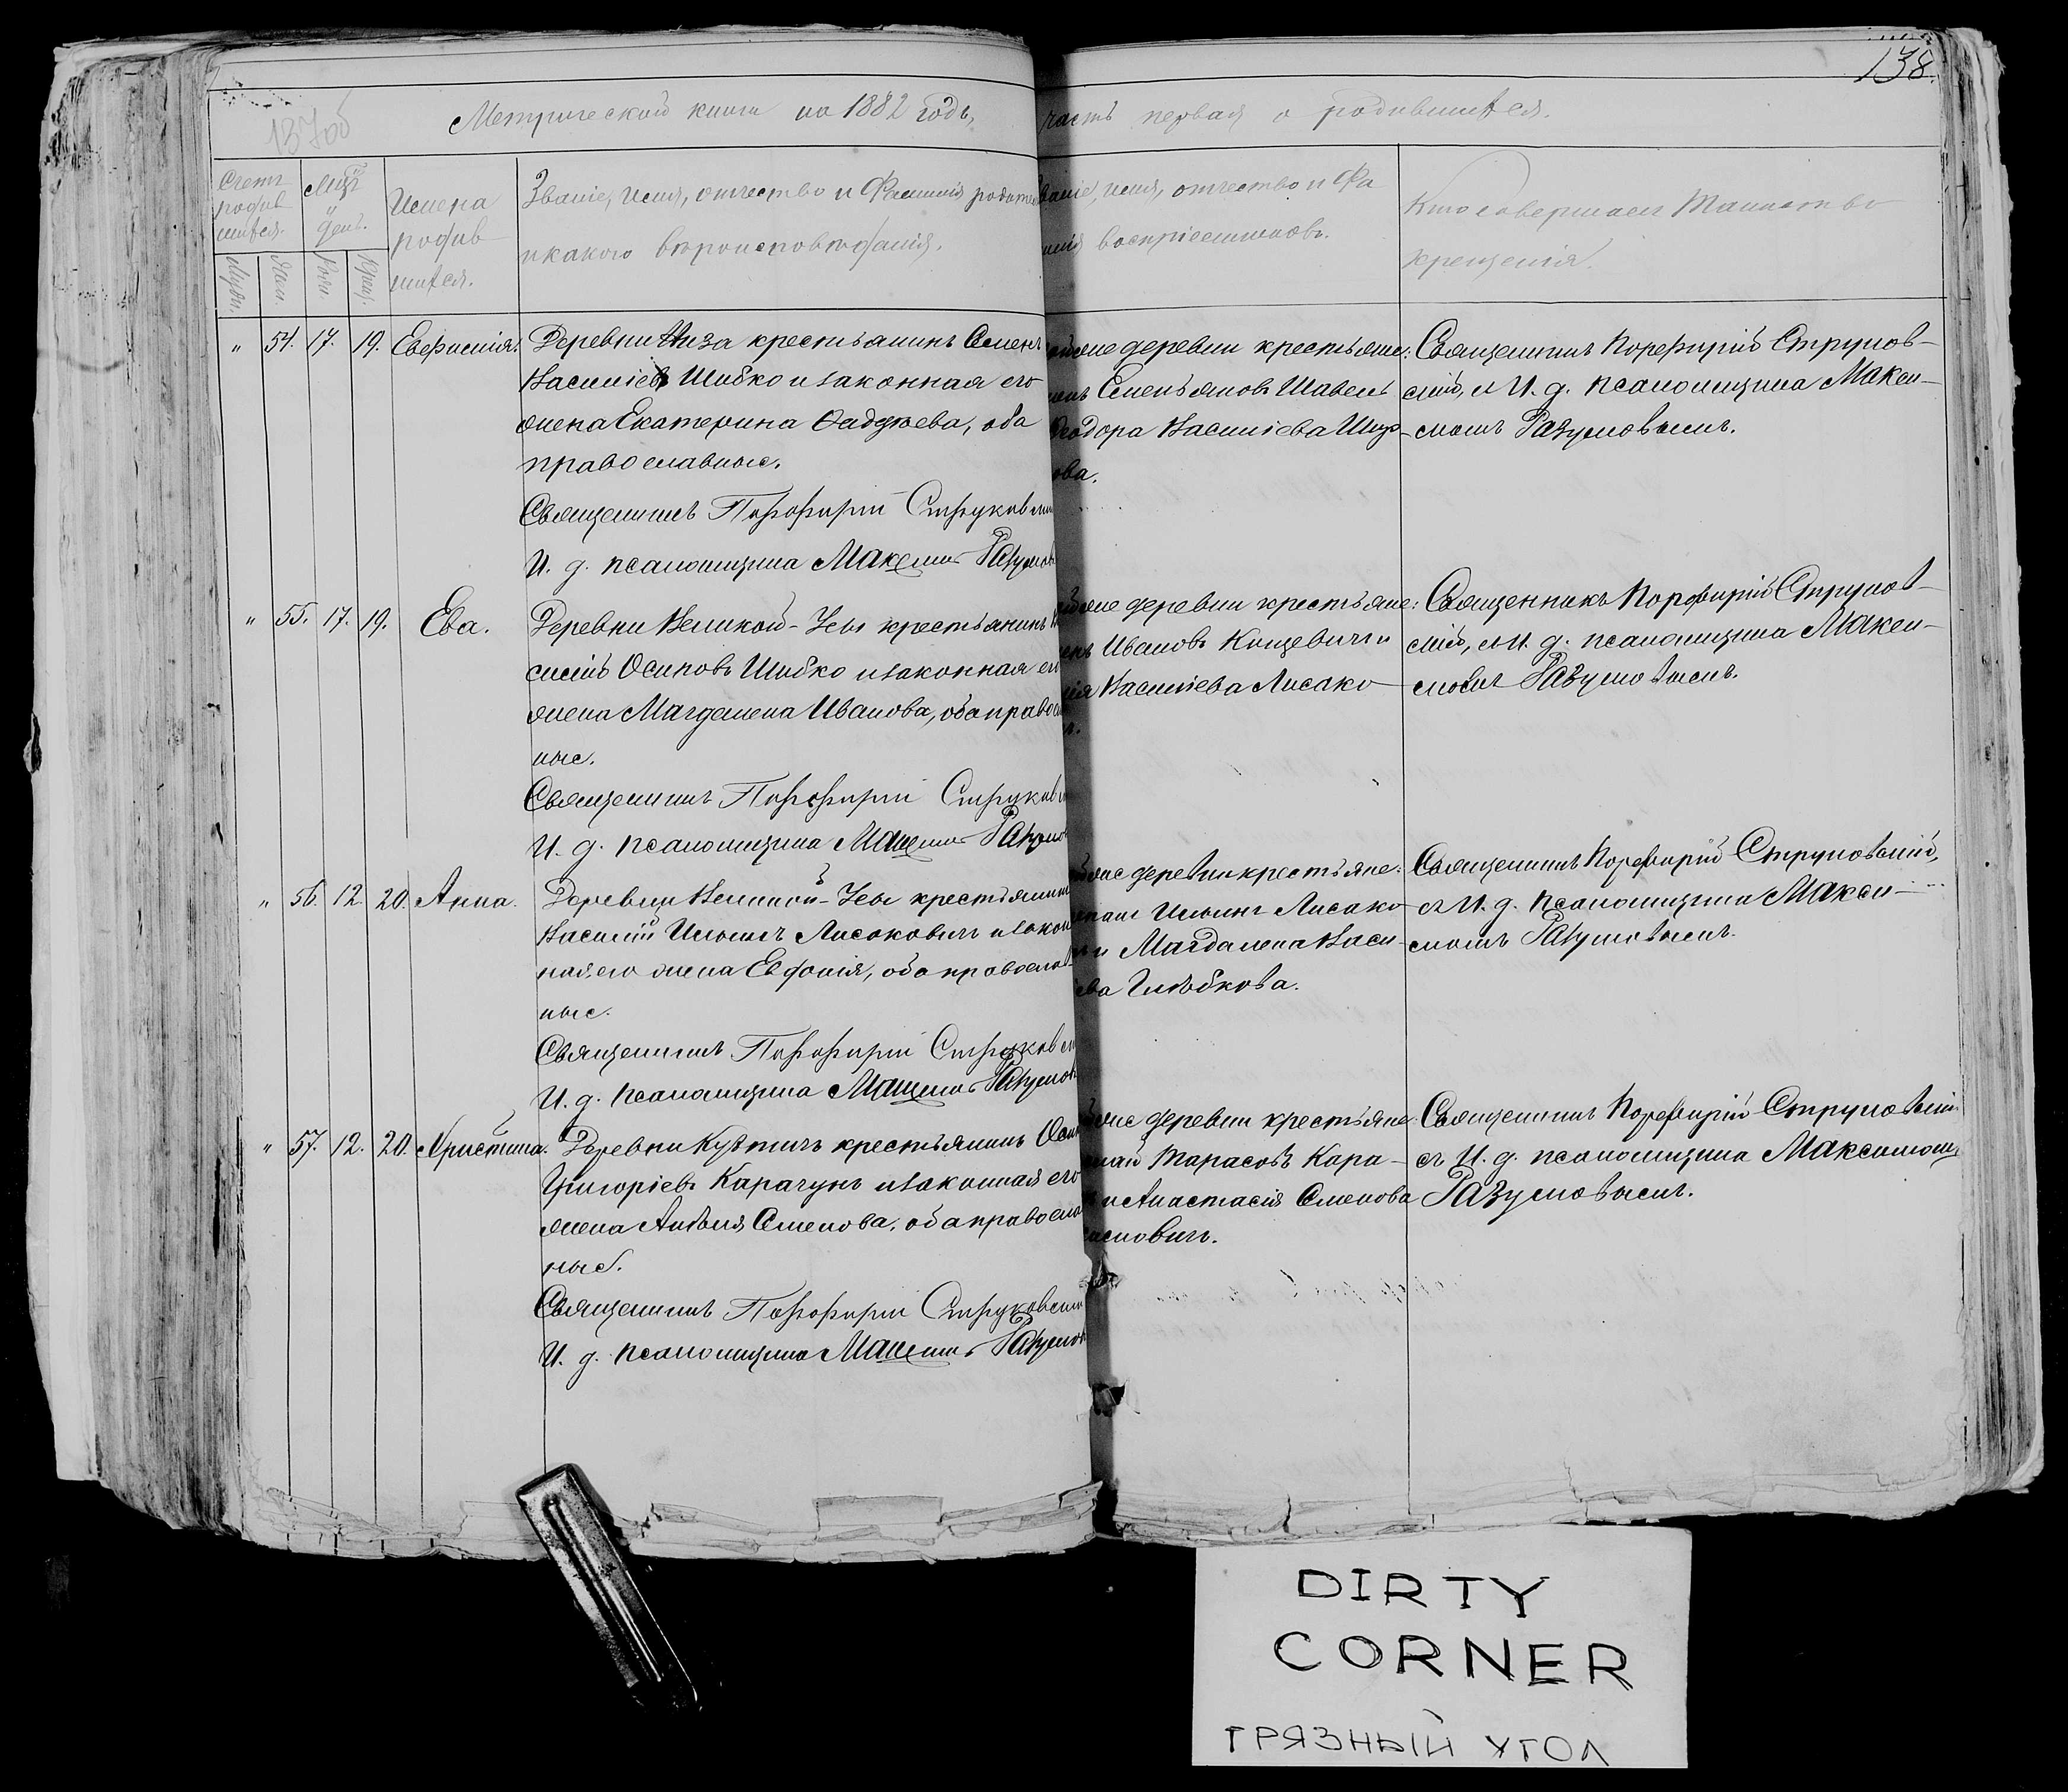 138.
137об
Метрической книги на 1882 годъ,
часть первая о родившихся.
Счетъ родив-
шихся.
Мцъ
и
день.
Имена
родив-
шихся.
Званіе, имя, отчество и Фамилія родител
и какого вѣроисповѣданія.
Званіе, имя, отчество и Фа
милія воспріемниковъ.
Кто совершалъ Таинство
крещенія.
Муж.
Жен.
Рожд.
Крещ.
" 54. 17. 19. Евфимія.
Деревни Низа крестьянинъ Семенъ
Василіевъ Шибко и законная его
жена Екатерина Фаддѣева, оба
православные.
Священникъ Порфирій Струковскій
И. д. псаломщика Максимъ Разумов
деревни крестьяне:
Емельяновъ Шавель
Ѳеодора Василіева Шир-
ова.
Священникъ Порфирій Струков-
скій, съ И. д. псаломщика Макси-
момъ Разумовымъ.
" 55. 17. 19. Ева.
Деревни Великой-Усы крестьянинъ
Осиповъ Шибко и законная его
жена Магдалена Иванова, оба правосл
ные.
Священникъ Порфирій Струковс
И. д. псаломщика Максимъ Разумов
деревни крестьяне:
Ивановъ Концевичъ и
Василіева Лисако-
Священникъ Порфирій Струков-
скій, съ И. д. псаломщика Макси-
момъ Разумовымъ.
" 56. 12. 20. Анна.
Деревни Великой-Усы крестьянинъ
Василій Ильичъ Лисаковичъ и закон
ная его жена Евфимія, оба православ-
ные.
Священникъ Порфирій Струковс
И. д. псаломщика Максимъ Разумов
деревни крестьяне:
Ильинъ Лисако-
и Магдалена Васи-
ева Глѣбкова.
Священникъ Порфирій Струковскій,
съ И. д. псаломщика Макси-
момъ Разумовымъ.
" 57. 12. 20. Христина.
Деревни Кувтичъ крестьянинъ Осип
Григоріевъ Карачунъ и законная его
жена Анна Семенова, оба правосла
ные.
Священникъ Порфирій Струковскій
И. д. псаломщика Максимъ Разумов
деревни крестьяне:
Тарасовъ Кара-
и Анастасія Семенова
Священникъ Порфирій Струковскій
съ И. д. псаломщика Максимомъ
Разумовымъ.
DIRTY
CORNER
ГРЯЗНЫЙ УГОЛ